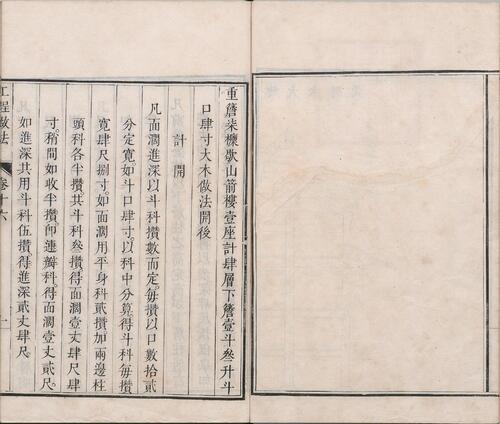 重簷柒檁歇山箭樓壹座計肆層下簷壹斗叁升斗
口肆寸大木做法開後
計開
凡面濶進深以斗科攅數而定每攅以口數拾貳
分定寛如斗口肆寸以科中分算得斗科每攅
寛肆尺捌寸如面濶用平身科貳攅加兩邊柱
頭科各半攅共斗科叁攅得面濶壹丈肆尺肆
寸稍間如收半攅卽連瓣科得面濶壹丈貳尺
如進深共用斗科伍攅得進深貳丈肆尺
工程做法
卷十六
一